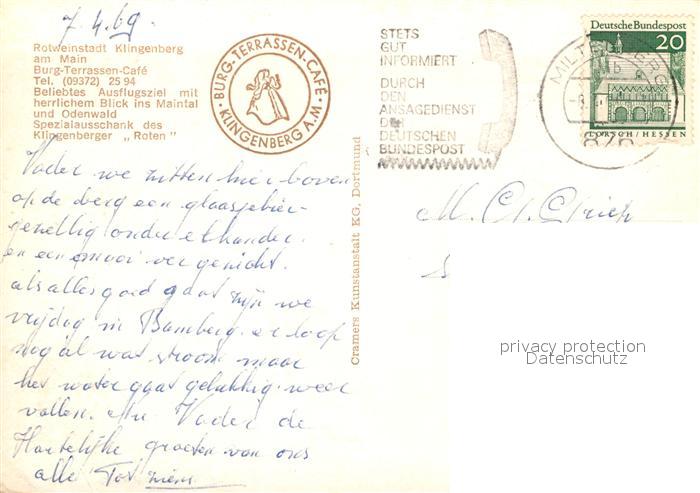 7.4.69.
Rotweinstadt Klingenberg
am Main
Burg-Terrassen-Café
Tel. (09372) 25 94
Beliebtes Ausflugsziel mit
herrlichem Blick ins Maintal
und Odenwald
Spezialausschank des
Klingenberger „Roten"
BURG-TERRASSEN-CAFÉ
KLINGENBERG A.M.
STETS
GUT
INFORMIERT
DURCH
DEN
ANSAGEDIENST
DER
DEUTSCHEN
BUNDESPOST
MILTENBERG
Deutsche Bundespost
20
LORSCH/HESSEN
Vader we zitten hier boven
op de berg een glaasje bier
gezellig onder elkander.
en een mooi ver gezicht.
als alles goed gaat zijn we
vrijdag in Bamberg. er loop
nog al wat stroom maar
het water gaat gelukkig weer
vallen. Vader de
Hartelijke groeten van ons
alle Tot ziens
Cramers Kunstanstalt KG, Dortmund
M.
privacy protection
Datenschutz